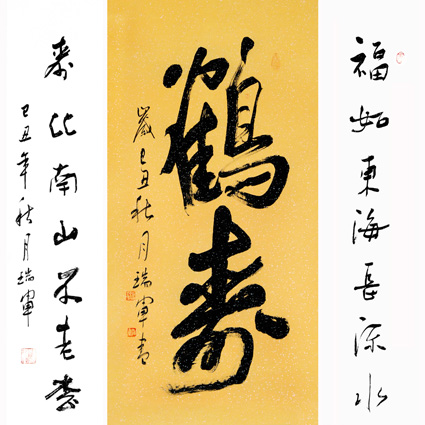 福如東海長流水
鶴寿
歲己丑秋月瑞軍書
寿比南山不老松
己丑年秋月瑞軍